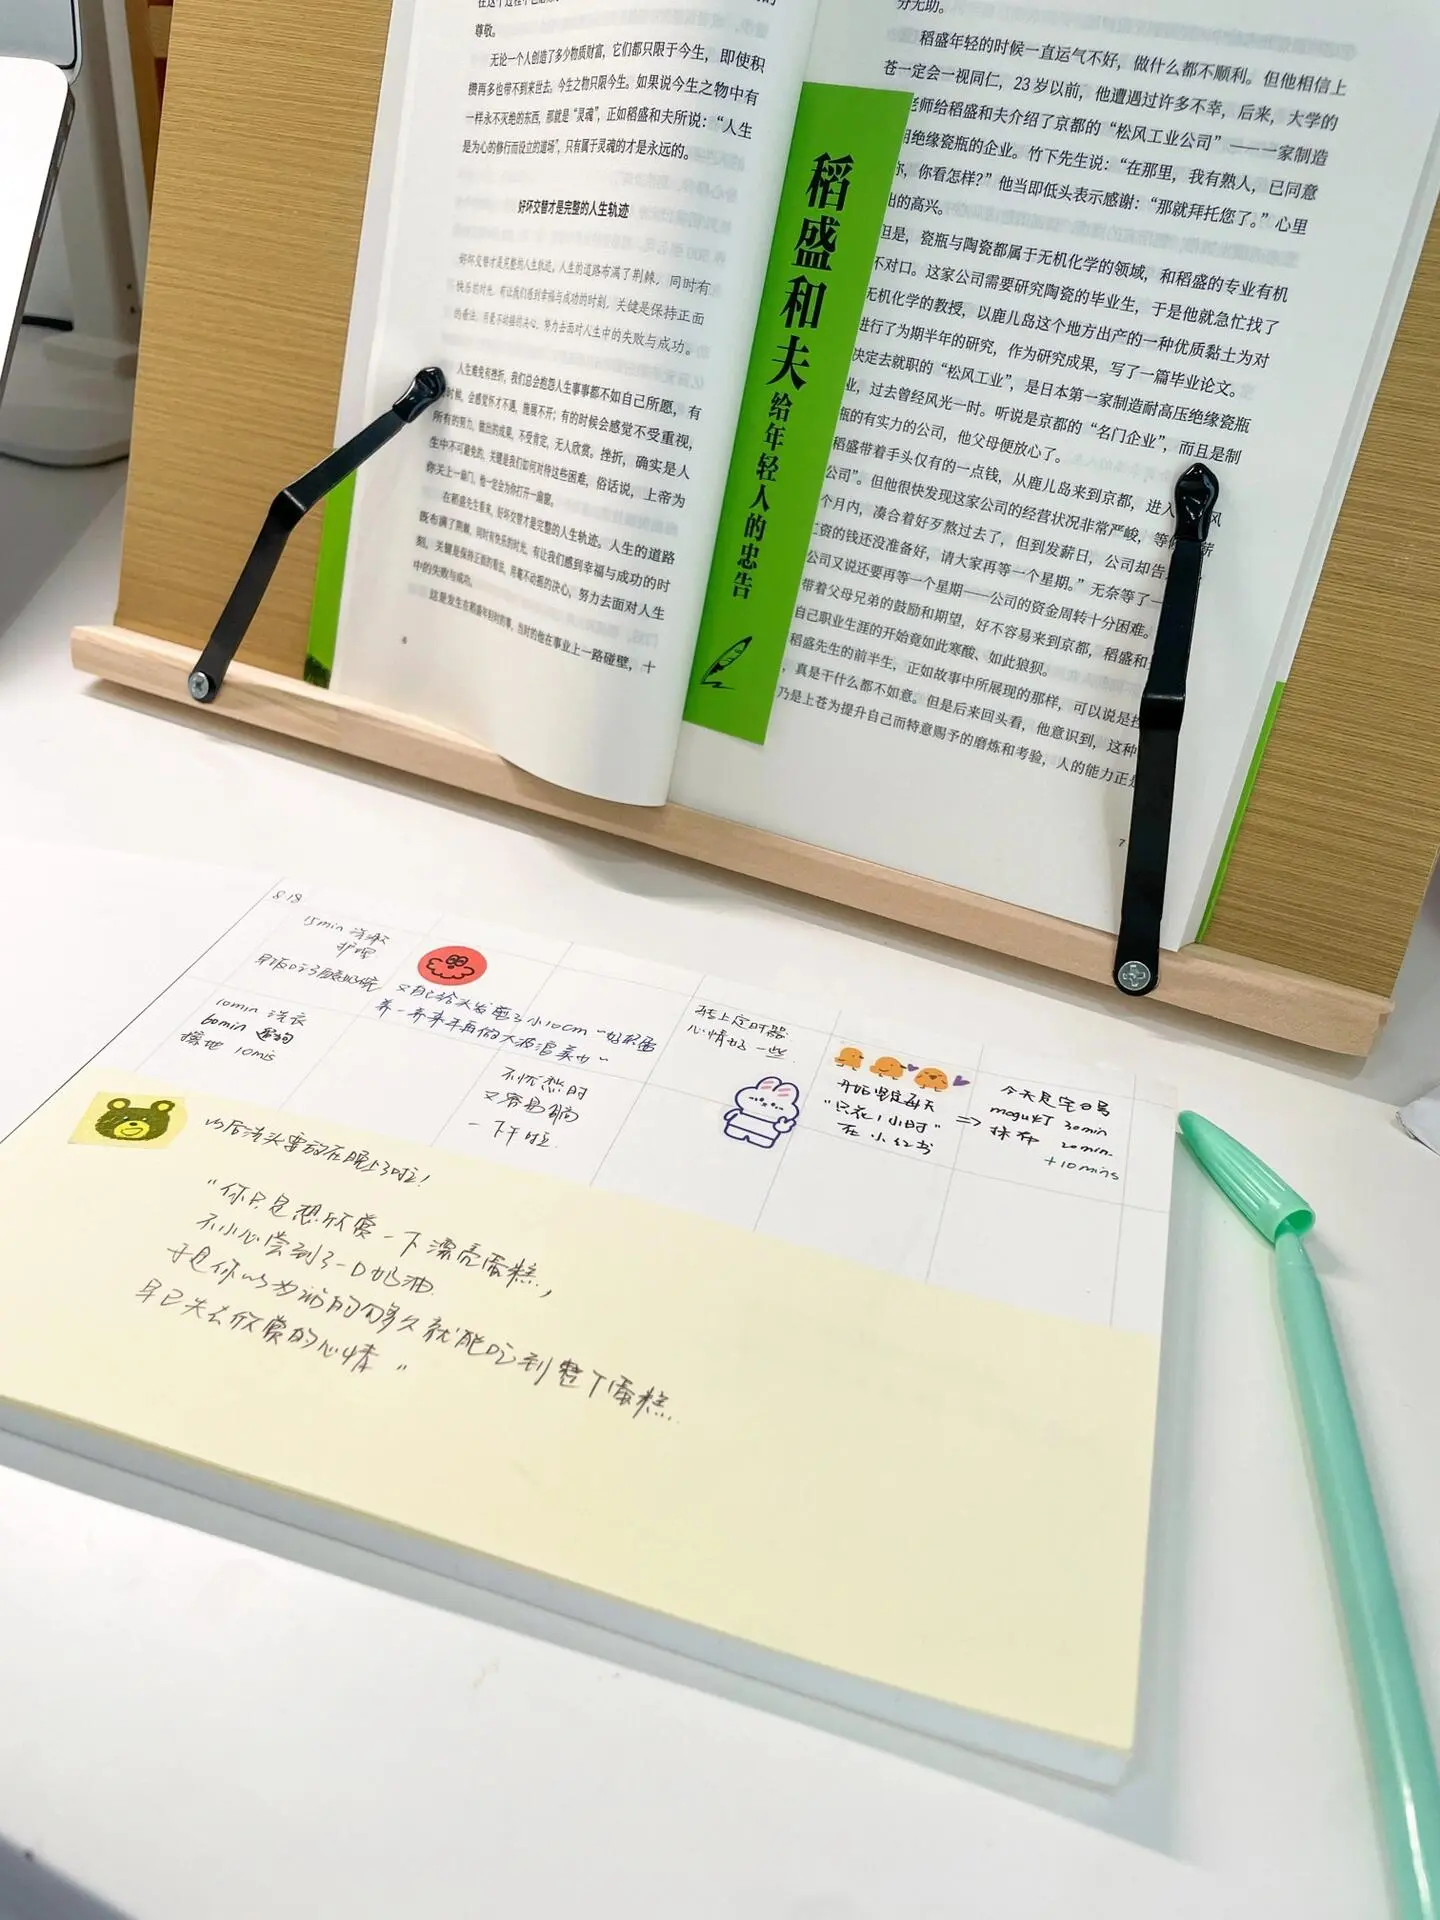 尊敬。
无论一个人创造了多少物质财富，它们都只限于今生，即使积
攒再多也带不到来世去。今生之物只限今生。如果说今生之物中有
一样永不灭绝的东西，那就是“灵魂”，正如稻盛和夫所说：“人生
是为心的修行而设立的道场”，只有属于灵魂的才是永远的。
好坏交替才是完整的人生轨迹
好坏交替才是完整的人生轨迹。人生的道路布满了荆棘，同时有
快乐的时光，有让我们感到幸福与成功的时刻，关键是保持正面
的看法，用毫不动摇的决心，努力去面对人生中的失败与成功。
人生难免有挫折，我们总会抱怨人生事事都不如自己所愿，有
时候，会感觉怀才不遇，施展不开；有的时候会感觉不受重视，
所有的努力，做出的成果，不受肯定，无人欣赏。挫折，确实是人
生中不可避免的，关键是我们如何对待这些困难，俗话说，上帝为
你关上一扇门，他一定会为你打开一扇窗。
在稻盛先生看来，好坏交替才是完整的人生轨迹。人生的道路
既布满了荆棘，同时有快乐的时光，有让我们感到幸福与成功的时
刻，关键是保持正面的看法，用毫不动摇的决心，努力去面对人生
中的失败与成功。
这是发生在稻盛年轻时的事，当时的他在事业上一路碰壁，十
6
稻盛和夫给年轻人的忠告
分无助。
稻盛年轻的时候一直运气不好，做什么都不顺利。但他相信上
苍一定会一视同仁，23岁以前，他遭遇过许多不幸，后来，大学的
老师给稻盛和夫介绍了京都的“松风工业公司”——一家制造
用绝缘瓷瓶的企业。竹下先生说：“在那里，我有熟人，已同意
你，你看怎样？”他当即低头表示感谢：“那就拜托您了。”心里
出的高兴。
但是，瓷瓶与陶瓷都属于无机化学的领域，和稻盛的专业有机
不对口。这家公司需要研究陶瓷的毕业生，于是他就急忙找了
无机化学的教授，以鹿儿岛这个地方出产的一种优质黏土为对
进行了为期半年的研究，作为研究成果，写了一篇毕业论文。
决定去就职的“松风工业”，是日本第一家制造耐高压绝缘瓷瓶
业，过去曾经风光一时。听说是京都的“名门企业”，而且是制
瓶的有实力的公司，他父母便放心了。
稻盛带着手头仅有的一点钱，从鹿儿岛来到京都，进入 风
公司”。但他很快发现这家公司的经营状况非常严峻，等 薪
个月内，凑合着好歹熬过去了，但到发薪日，公司却告
工资的钱还没准备好，请大家再等一个星期。”无奈等了一
公司又说还要再等一个星期——公司的资金周转十分困难。
带着父母兄弟的鼓励和期望，好不容易来到京都，稻盛和
自己职业生涯的开始竟如此寒酸、如此狼狈。
稻盛先生的前半生，正如故事中所展现的那样，可以说是
，真是干什么都不如意。但是后来回头看，他意识到，这种
乃是上苍为提升自己而特意赐予的磨炼和考验，人的能力正是
7
8.18
15min 洗漱
护肤
早饭吃了
10min 洗衣
60min 遛狗
擦地 10mis
又自己给头发剪了小10cm
养一养来年再做大波浪美女~
不忧愁的
又容易躺
一下午啦
开上定时器
心情好一些
开始坚定每天
“只花1小时”
在小红书
=>
今天是宅日子
mogu灯 30min
抹布 20min
+10mins
以后洗头要放在晚上了啦！
“你只是想欣赏一下漂亮蛋糕，
不小心尝到了一口奶油
于是你以为站的够久就能吃到整个蛋糕
早已失去欣赏的心情”